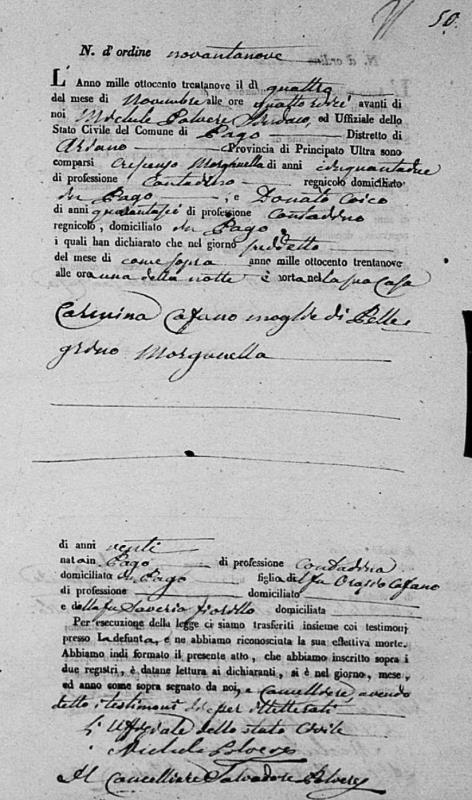 50.
N. d'ordine novantanove
L'Anno mille ottocento trentanove il dì quattro
del mese di Novembre alle ore quattordici avanti di
noi Michele Polvere Sindaco, ed Uffiziale dello
Stato Civile del Comune di Pago Distretto di
Ariano Provincia di Principato Ultra sono
comparsi Crescenzo Morganella di anni cinquantadue
di professione Contadino regnicolo domiciliato
in Pago, e Donato Coico
di anni quarantasei di professione Contadino
regnicolo, domiciliato in Pago
i quali han dichiarato che nel giorno suddetto
del mese di come sopra anno mille ottocento trentanove
alle ore una della notte è morta nella sua Casa
Carmina Cafano moglie di Pelle=
grino Morganella
di anni venti
nata in Pago di professione contadina
domiciliata in Pago figlia del fu Orazio Cafano
di professione domiciliato
e della fu Saveria Fiorillo domiciliata
Per esecuzione della legge ci siamo trasferiti insieme coi testimonj
presso la defunta, e ne abbiamo riconosciuta la sua effettiva morte.
Abbiamo indi formato il presente atto, che abbiamo inscritto sopra i
due registri, è datane lettura ai dichiaranti, si è nel giorno, mese,
ed anno come sopra segnato da noi, e Cancelliere, avendo
detto i testimoni di esser illetterati
L'Uffiziale dello stato Civile
Michele Polvere
Il Cancelliere Salvadore Polvere